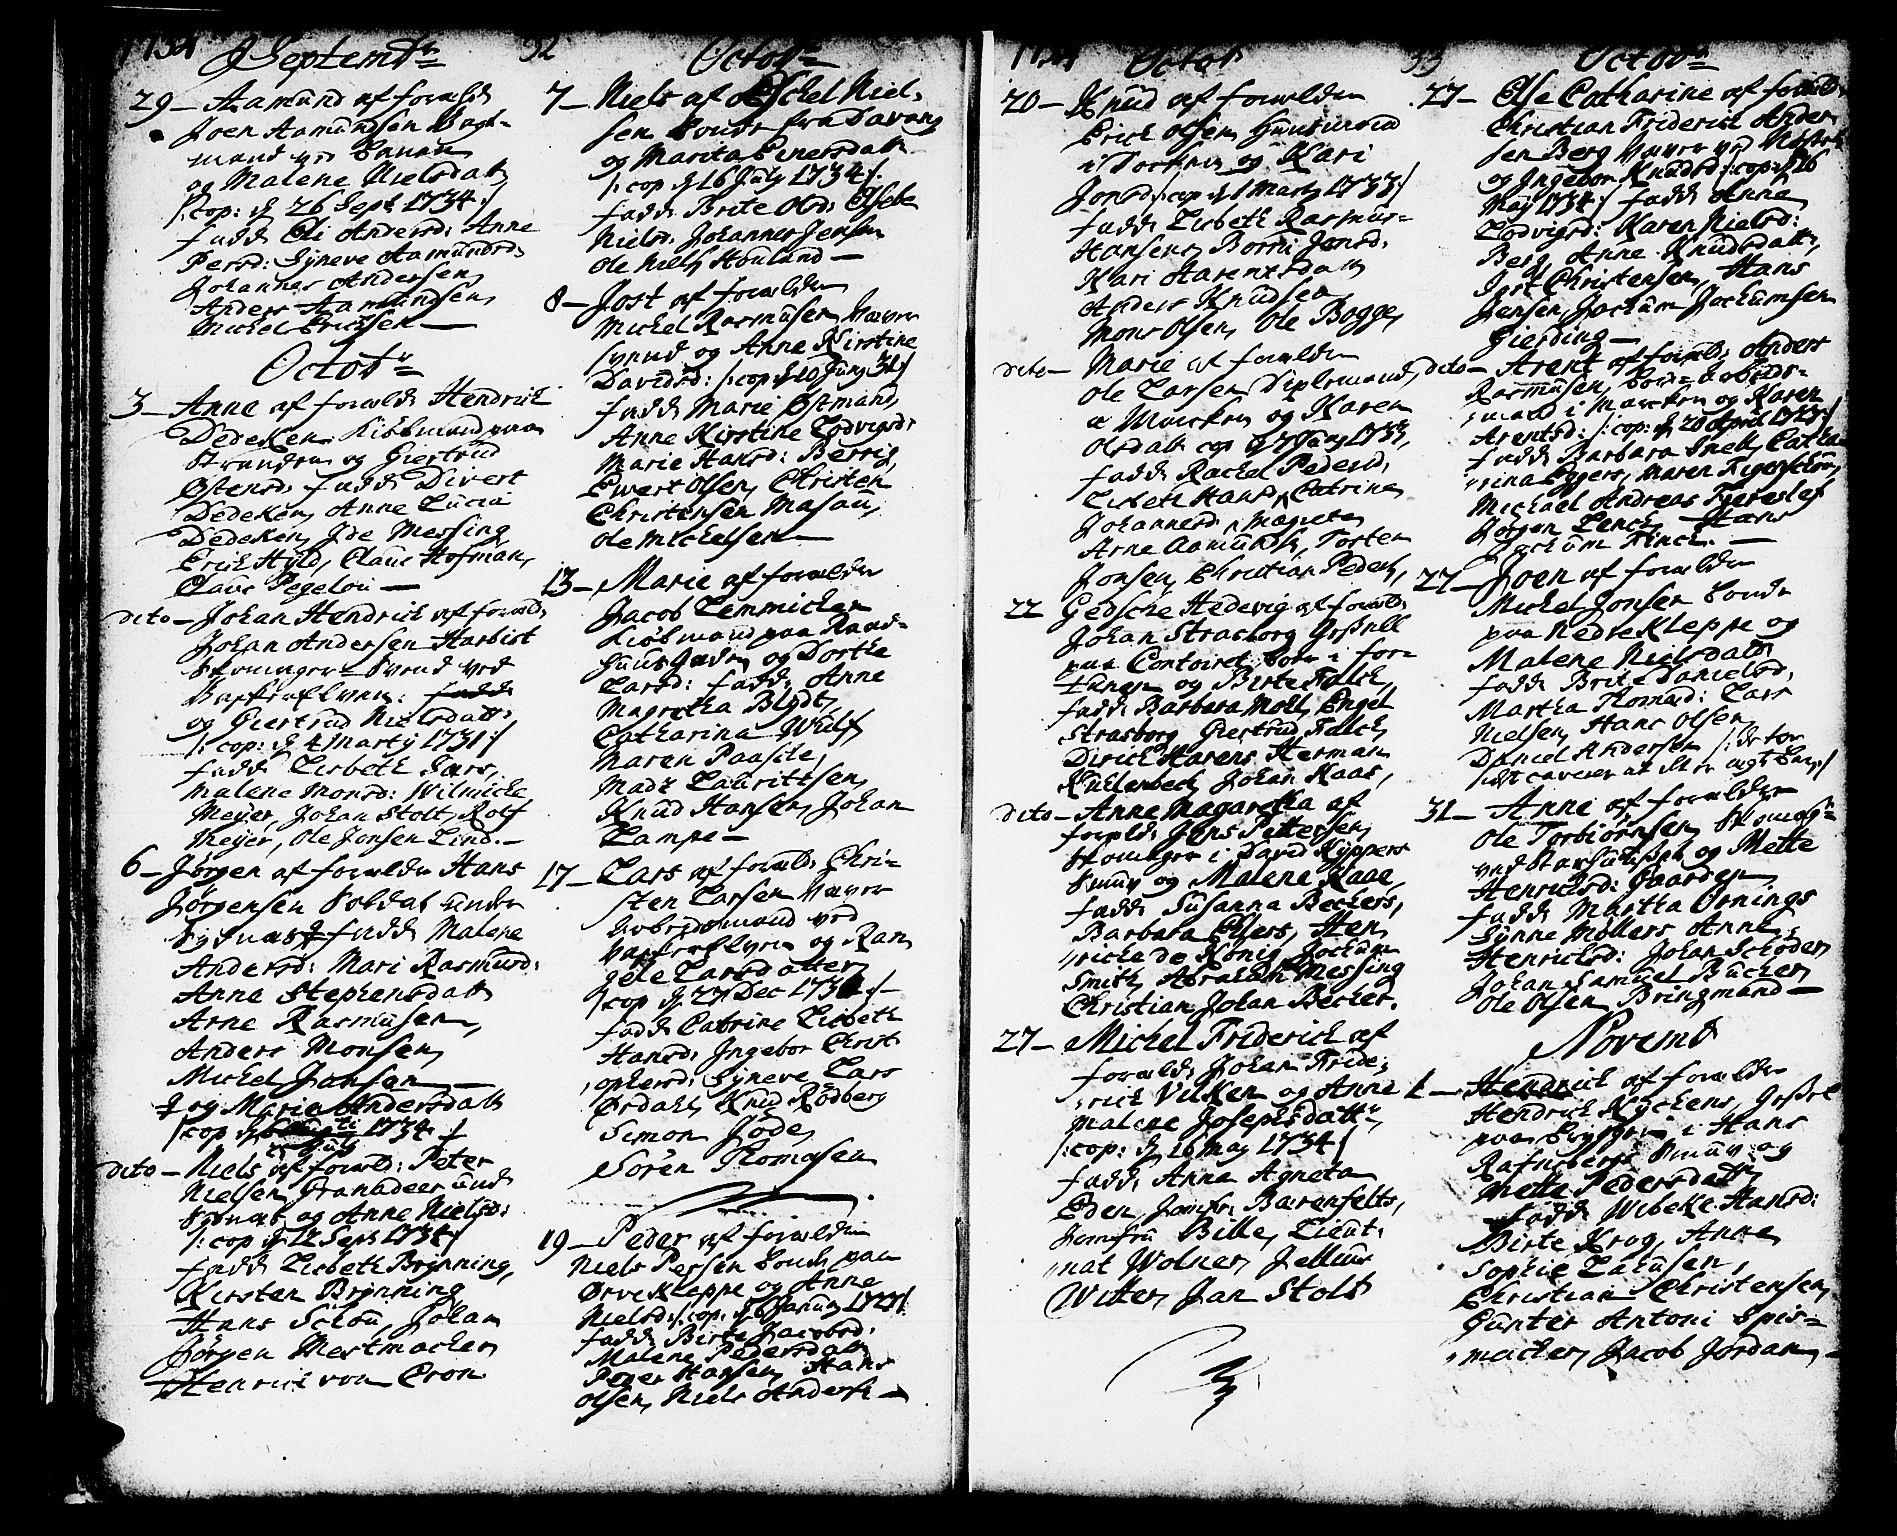 1734
Septembr
29 - Aamund af forældr
Joen Aamundsen
mand ved
og Malene Nielsdatt
/: cop: d 26 Sept 1734 :/
fadd. Eli Andersd: Anne
Persd: Syneve Aamundsd:
Johannes Andersen,
Anders Aamundsen,
Michel Erichsen —
Octobr
3 - Anne af forældr Hendrich
Dedeken Kiøbmand paa
Stranden og Giertrud
Østensd: fadd. Divert
Dedeken, Anne Lucia
Dedeken, Ide Messing
Erich Hyld, Claus Hofman,
Claus Pegelou —
dito - Johan Hendrich af forældr
Johan Andersen Harbist
Skomager Svend ved
fadd.
og Giertrud Nielsdatt:
/: cop: d 4 Marty 1731 :/
fadd. Lisbeth Sars,
Malene Monsd: Wilmicke
Meyer, Johan Stolt, Rolf
Meyer, Ole Jonsen Lind. —
6 - Jørgen af forældr Hans
Jørgensen Soldat under
fadd. Malene
Andersd: Mari Rasmusd:
Anne Stephensdatt
Arne Rasmusen,
Anders Monsen,
Michel Jansen —
og Marie Andersdatt
/: cop d 1734 :/
dito - Niels af foræld: Peter
Nielsen Granadeer und
og Anne Nielsd:
/: cop d 12 Sept 1734 :/
fadd. Lisbeth Brynning,
Kirsten Brynning
Hans Schou, Johan
Jørgen Mestmacher
Henrich von Cron
32
Octobr
7 - Niels af Aschel Niel-
sen bonde fra Davang
og Marita Einersdatt
/: cop d 16 July 1734 :/
fadd. Brite Olsd: Elsebe
Nielsd: Johannes Jensen
Ole Niels Houland —
8 - Jost af forældr
Michel Rasmusen Væver
svend og Anne Kirstine
Davidsd: /: cop d 10 Juny 31 :/
fadd. Marie Ostmand,
Anne Kirstine Lodvigsd:
Marie Hansd: Berrig,
Ewert Olsen, Christen
Christensen Masau,
Ole Michelsen —
13 - Marie af forældr
Jacob Lemmicken
Kiøbmand paa Raad-
huus Gaden og Dorthe
Larsd: fadd. Anne
Magretha Blydt,
Catharina Wulf
Maren Paasche,
Madz Lauritzsen,
Knud Hansen, Johan
Lampe —
17 - Lars af foræld: Chri-
sten Larsen Væver
Arbeydsmand ved
og Ran
gele Larsdatter
/: cop d 27 Dec 1731 :/
fadd. Catrine Lisbeth
Hansd: Ingebor Christ
ophersd: Syneve Lars
Ørdahl, Knud Rødberg
Simon Jøde,
Søren Thomasen
19 - Peder af forældr
Niels Persen bonde paa
Øvre Kleppe og Anne
Nielsd: /: cop: d 6 January 1727 :/
fadd. Birte Jacobsd:
Malene Pedersdatt
Peder Hansen, Hans
Olsen, Niels Anders. —
1734
Octobr
20 - Knud af forældr
Erich Olsen Huusmand
i og Kari
Jonsd: /: cop d 1 Marty 1733 :/
fadd. Lisbeth Rasmus-
Hansens, Borni Jensd:
Kari Harentsdatt
Anders Knudsen
Mons Olsen, Ole Bogge,
dito - Marie af forældr
Ole Larsen Diplemand
a Marcken og Karen
Olsdatt cop d 7 Juny 1733,
fadd. Rachel Pedersd:
Lisbeth Hansd: Catrine
Johannesd: Magrete
Arne Aamunds. Torsten
Jonsen, Christian Peders,
22 Gedsche Hedevig af foræld
Johan Strasborg Gesell
paa Contoiret
og Birte Falch,
fadd. Barbara Moll, Engel
Strasborg Giertrud Falch
Dirich Harens Herman
Kuhlenbech, Johan Kaas,
dito - Anne Magaretha af
foræld: Jens Pettersen,
Skomager i David Kyppers
Smuv og Malene Kaae,
fadd. Susanna Beckers,
Barbara Ehlers, Hen
riche de König Jochum
Smith, Abraham Messing
Christian Johan Becker.
27 - Michel Friderich af
foræld: Johan Fride-
rich Vilken og Anne
Malene Josephsdatt:
/: cop: d 16 May 1734 :/
fadd. Anna Agneta
Eden, Jomfr: Bærenfelts,
Jomfru Bille, Lieut-
nat Wolner, Jellius
Witter, Jan Stolt
33
Octobr
27 - Else Catharine af foræld:
Christian Friderich Ander
sen Berg Væver ved
og Ingebor Knudsd: /: cop: d 16
May 1734 :/ fadd. Anne
Lodvigsd: Karen Nielsd:
Berg, Anne Knudsdatt,
Jost Christensen, Hans
Jensen, Jochum Jochumsen
Gierding —
dito - Arent af foræld: Anders
Rasmusen, Arbeids-
mand i Marcken og Karen
Arentsd: /: cop: d 20 April 1727 :/
fadd. Barbara Snell, Catha
rina Eggers, Maren Figenschou,
Michael Andreas Fjereslef
Jørgen Lench, Hans
Jochum Finch. —
27 - Joen af forældr
Michel Jonsen bonde
paa Nedre Kleppe og
Malene Nielsdatt
fadd. Brite Danielsd:
Martha Thomasd: Lars
Nielsen, Hans Olsen,
Daniel Andersen
31 - Anne af forældr
Ole Torbiørnsen Skomag-
ved og Mette
Henrichsd: Gaarden
fadd. Martha Ornings
Synne Møllers Anne
Henrichsd: Johan Schøder,
Johan Samuel Bücher,
Ole Olsen Bringmand —
Novemb
1 - Hendrich af forældr
Hendrich Kyckens, Gesel
paa Bryggen i Hans
Rafnsbergs Smuv og
Mette Pedersdatt
fadd. Wibeke Hansd:
Birte Krog, Anne
Sophie Lausen,
Christian Christensen,
Gunter Antoni Spis-
macher, Jacob Jordan, —